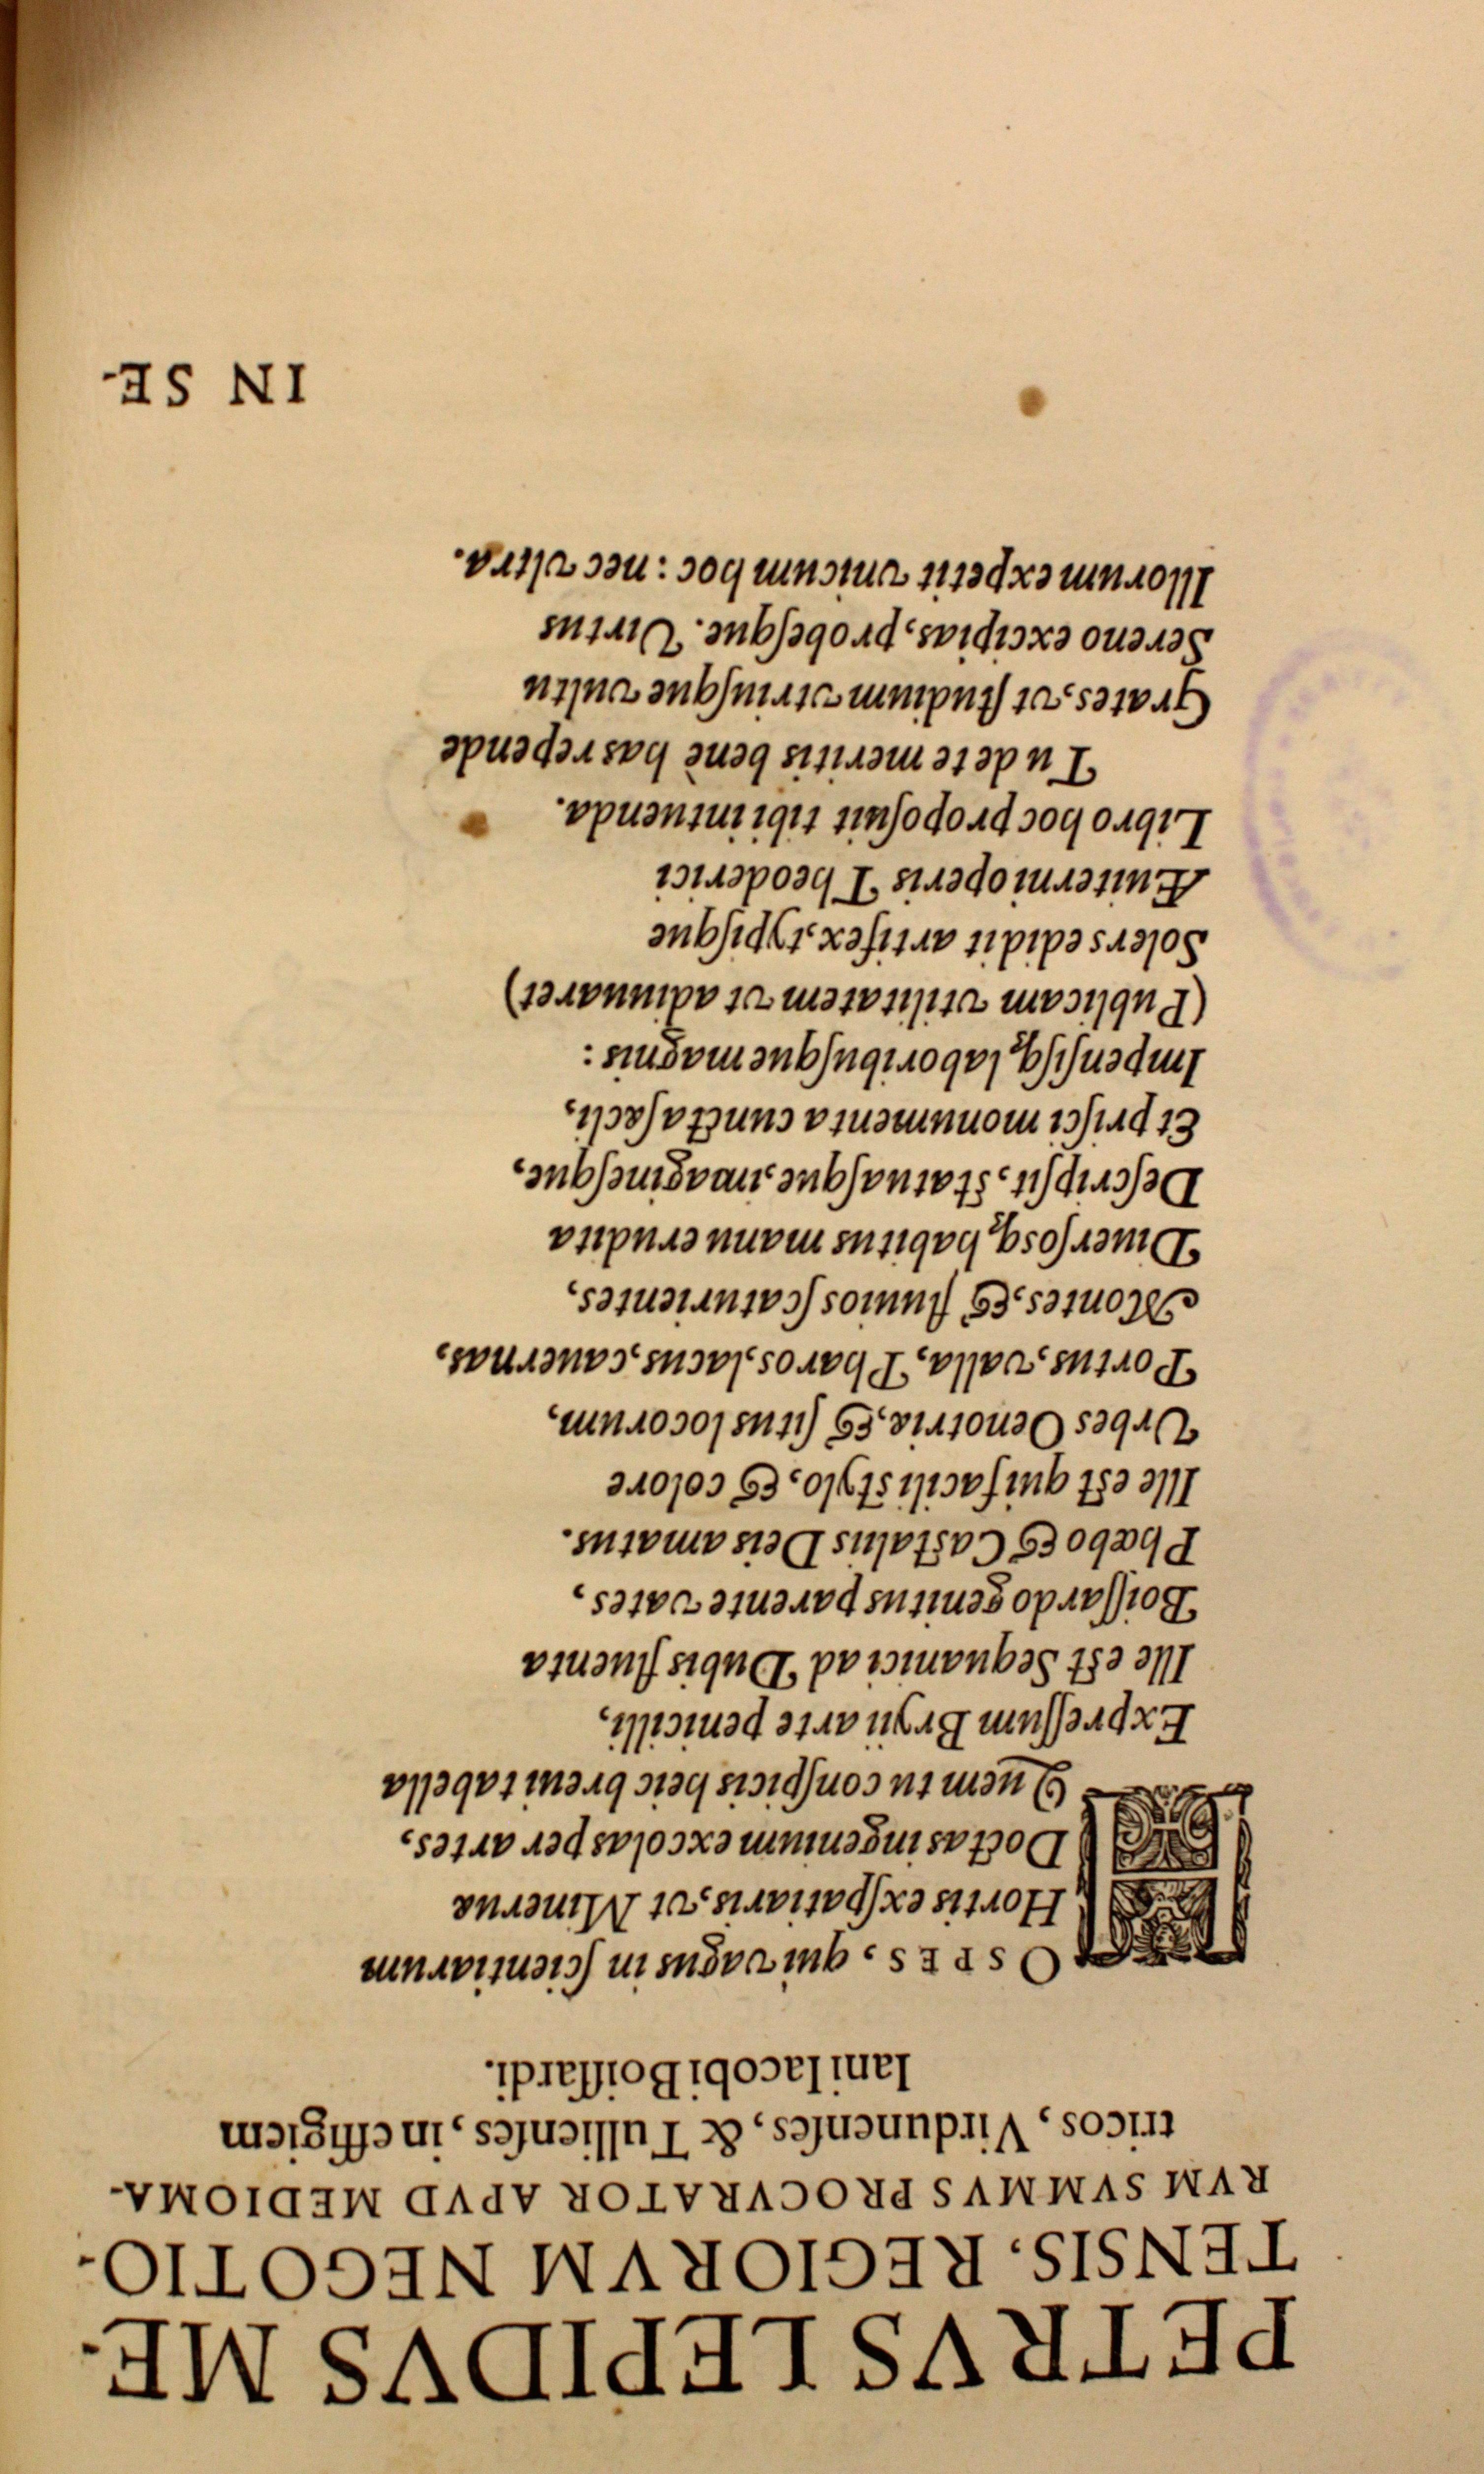 PETRVS LEPIDVS ME-
TENSIS, REGIORVM NEGOTIO-
RVM SVMMVS PROCVRATOR APVD MEDIOMA-
tricos, Virdunenſes, & Tullienſes, in effigiem
Iani Iacobi Boiſſardi.
HOSPES, qui vagus in ſcientiarum
Hortis exſpatiaris, vt Mineruæ
Doctas ingenium excolas per artes,
Quem tu conſpicis heic breui tabella
Expreſſum Bryii arte penicilli,
Ille est Sequanici ad Dubis fluenta
Boiſſardo genitus parente vates,
Phœbo & Castaliis Deis amatus.
Ille est qui facili stylo, & colore
Vrbes Oenotriæ, & ſitus locorum,
Portus, valla, Pharos, lacus, cauernas,
Montes, & fluuios ſcaturientes,
Diuerſosq; habitus manu erudita
Deſcripſit, statuaſque, imagineſque,
Et priſci monumenta cuncta ſæcli,
Impenſiſq; laboribuſque magnis:
(Publicam vtilitatem vt adiuuaret)
Solers edidit artifex, typiſque
Æuiterni operis Theoderici
Libro hoc propoſuit tibi intuenda.
Tu de te meritis benè has repende
Grates, vt ſtudium vtriuſque vultu
Sereno excipias, probeſque. Virtus
Illorum expetit vnicum hoc: nec vltra.
IN SE-